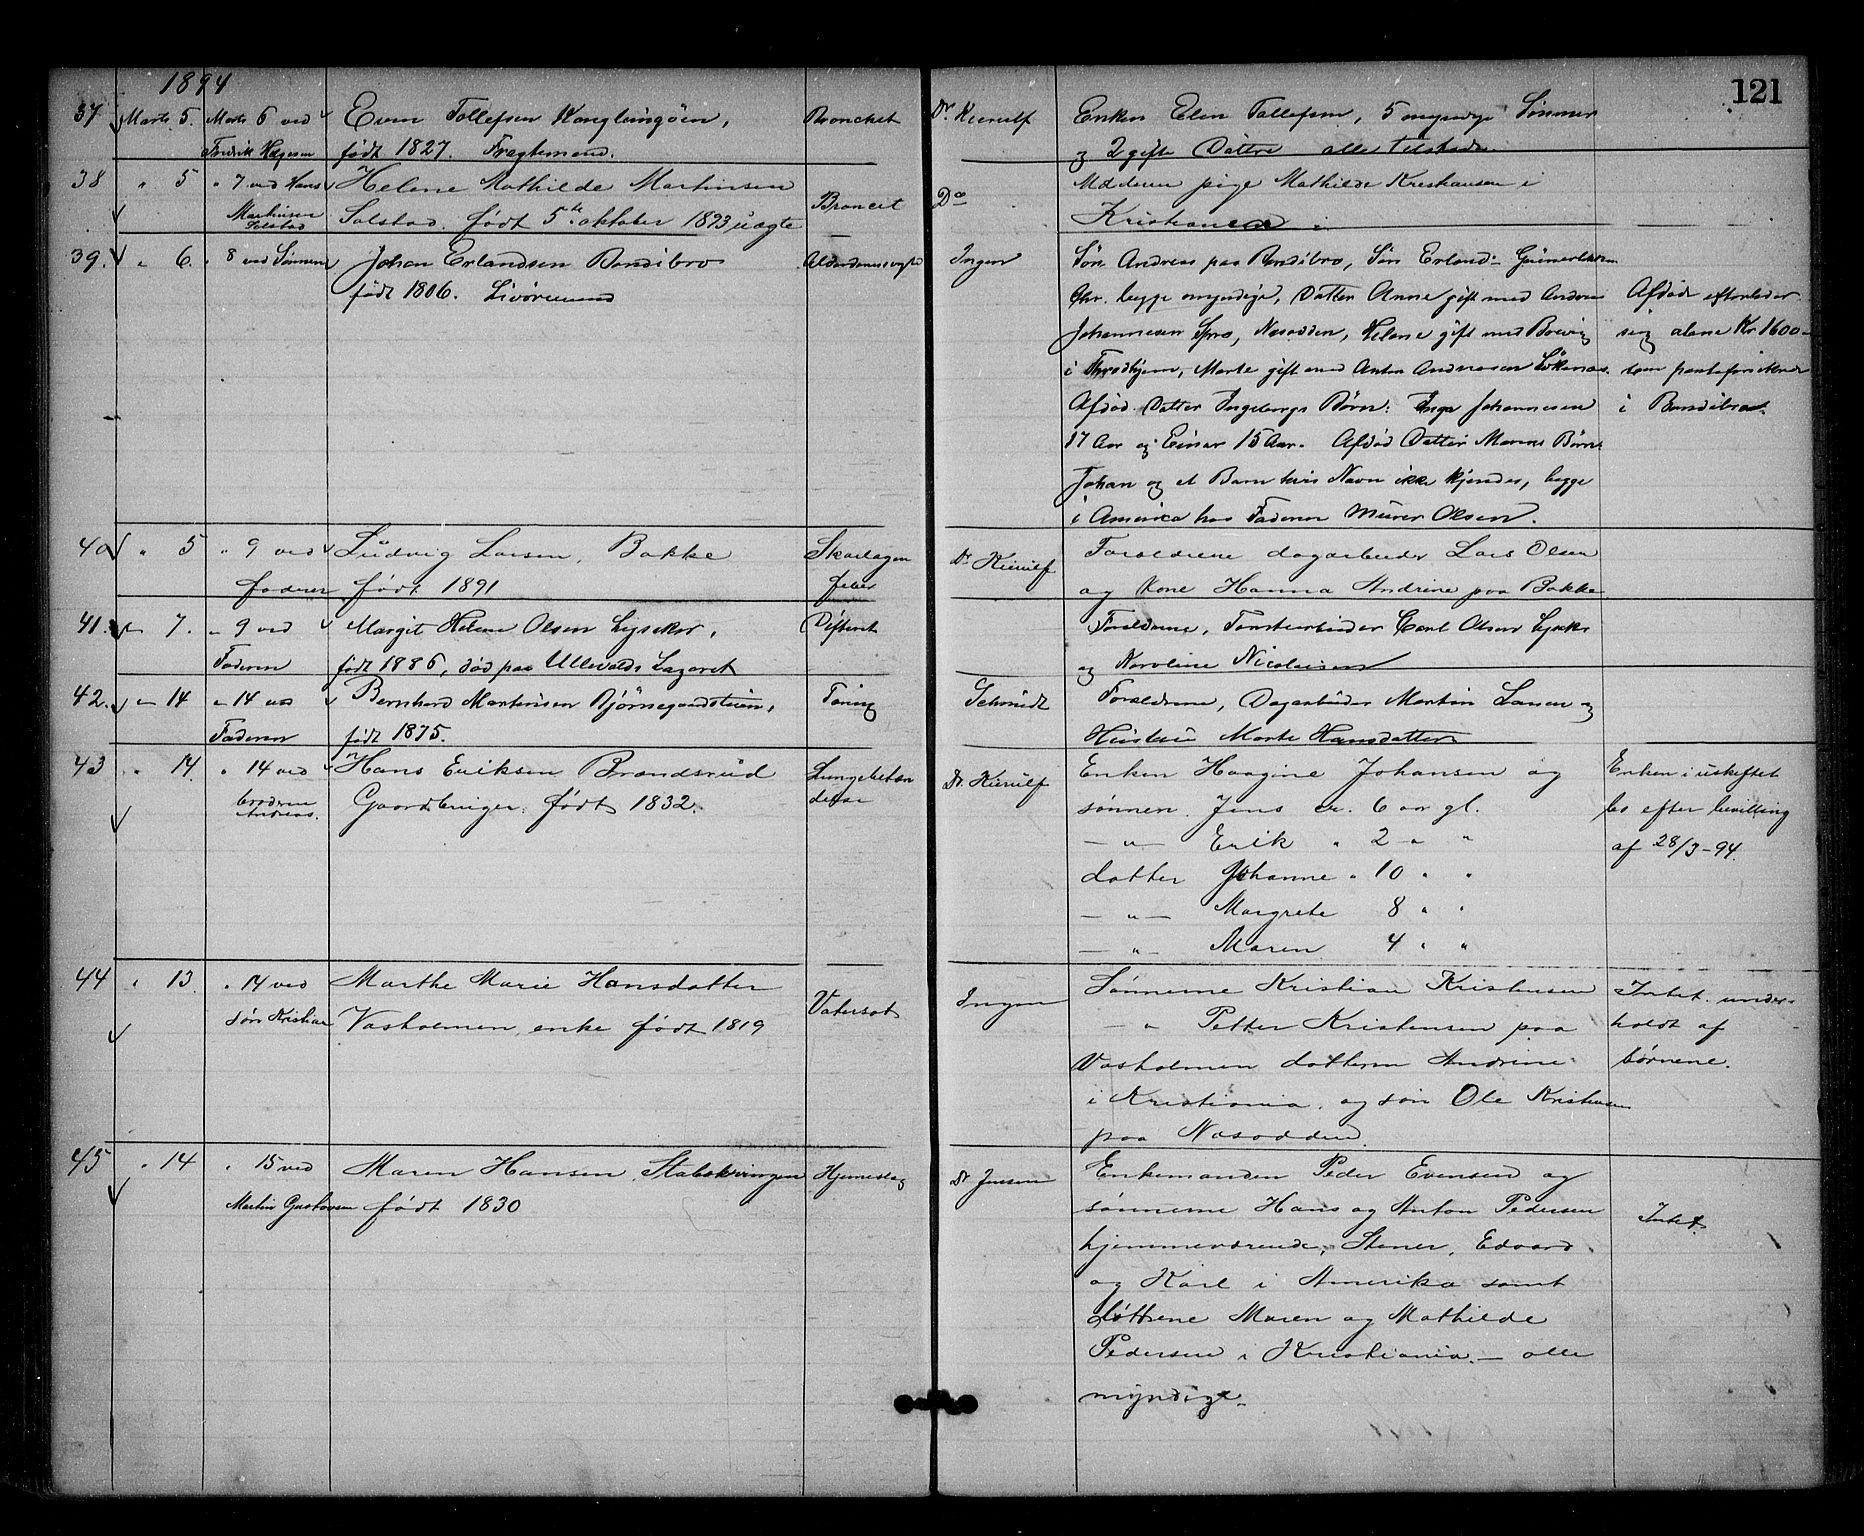 121
1894
37 Marts 5. Marts 6 ved Even Tollefsen Konglungöen, Bronchit Dr. Kierulf Enken Elen Tollefsen, 5 myndige Sönner
Fredrik Hægesen født 1827. Fragtemand. og 2 gifte Døttre alle tilstede
38 " 5 " 7 ved Hans Helene Mathilde Martinsen Broncit Do Moderen pige Mathilde Kristiansen i
Martinsen Solstad Solstad. født 5te oktober 1893 uægte Kristiania
39. " 6. " 8 ved Sønnen Johan Erlandsen Bondibro Alderdomssvaghed Ingen Søn Andreas paa Bondibro, Søn Erland
født 1806. Livöremand Chr. begge myndige, Datter Anne gift med Andreas Afdøde efterlader
Johannesen Spro, Nesodden, Helene gift med Brevig sig alene Kr. 1600
i Throdhjem, Marte gift med Anton Andreasen Løkenes. som panteforsikrede
Afdød Datter Ingeborgs Børn: Inga Johannesen i Bondibro.
17 Aar og Einar 15 Aar. Afdød Datter Marens Børn
Johan og et Barn hvis Navn ikke kjendes, begge
i America hos Faderen Murer Olsen.
40 " 5 " 9 ved Ludvig Larsen, Bakke Skarlagen Dr. Kierulf Forældrene dagarbeider Lars Olsen
faderen født 1891 feber og Kone Hanna Andrine paa Bakke
41. " 7. " 9 ved Margit Helene Olsen Lysaker, Difterit Forældrene, Tomtearbeider Carl Olsen Lysaker
Faderen født 1886, død paa Ullevolds Lazaret og Karoline Nicolaisen
42. " 14 " 14 ved Bernhard Martinsen Bjørnegaardsteien, Tæring Schmidt Forældrene, Dagarbeider Martin Larsen og
Faderen født 1875. Hustru Marte Hansdatter
43 " 14. " 14 ved Hans Eriksen Brandsrud Lungebetæn Dr. Kierulf Enken Haagine Johansen og Enken i uskiftet
broderen Andreas. Gaardbruger. født 1832. delse sønnen Jens er 6 aar gl. bo efter bevilling
— " — Erik " 2 " " af 28/3-94.
datter Johanne " 10 " "
— " — Margrete 8 " "
— " — Maren 4 " "
44 " 13. " 14 ved Marthe Marie Hansdatter Vatersot Ingen Sønnerne Kristian Kristensen Intet. under-
søn Kristian Vasholmen, enke født 1819 — " Petter Kristensen paa holdt af
Vasholmen datteren Andrine børnene.
i Kristiania, og søn Ole Kristensen
paa Nesodden.
45 " 14 " 15 ved Maren Hansen, Stabekvingen Hjerneslag Dr Jensen Enkemanden Peder Evensen og
Martin Gustavsen født 1830 sønnerne Hans og Anton Pedersen Intet.
hjemmeværende, Stener, Edvard
og Karl i Amerika samt
døttrene Maren og Mathilde
Pedersen i Kristiania. — alle
myndige.